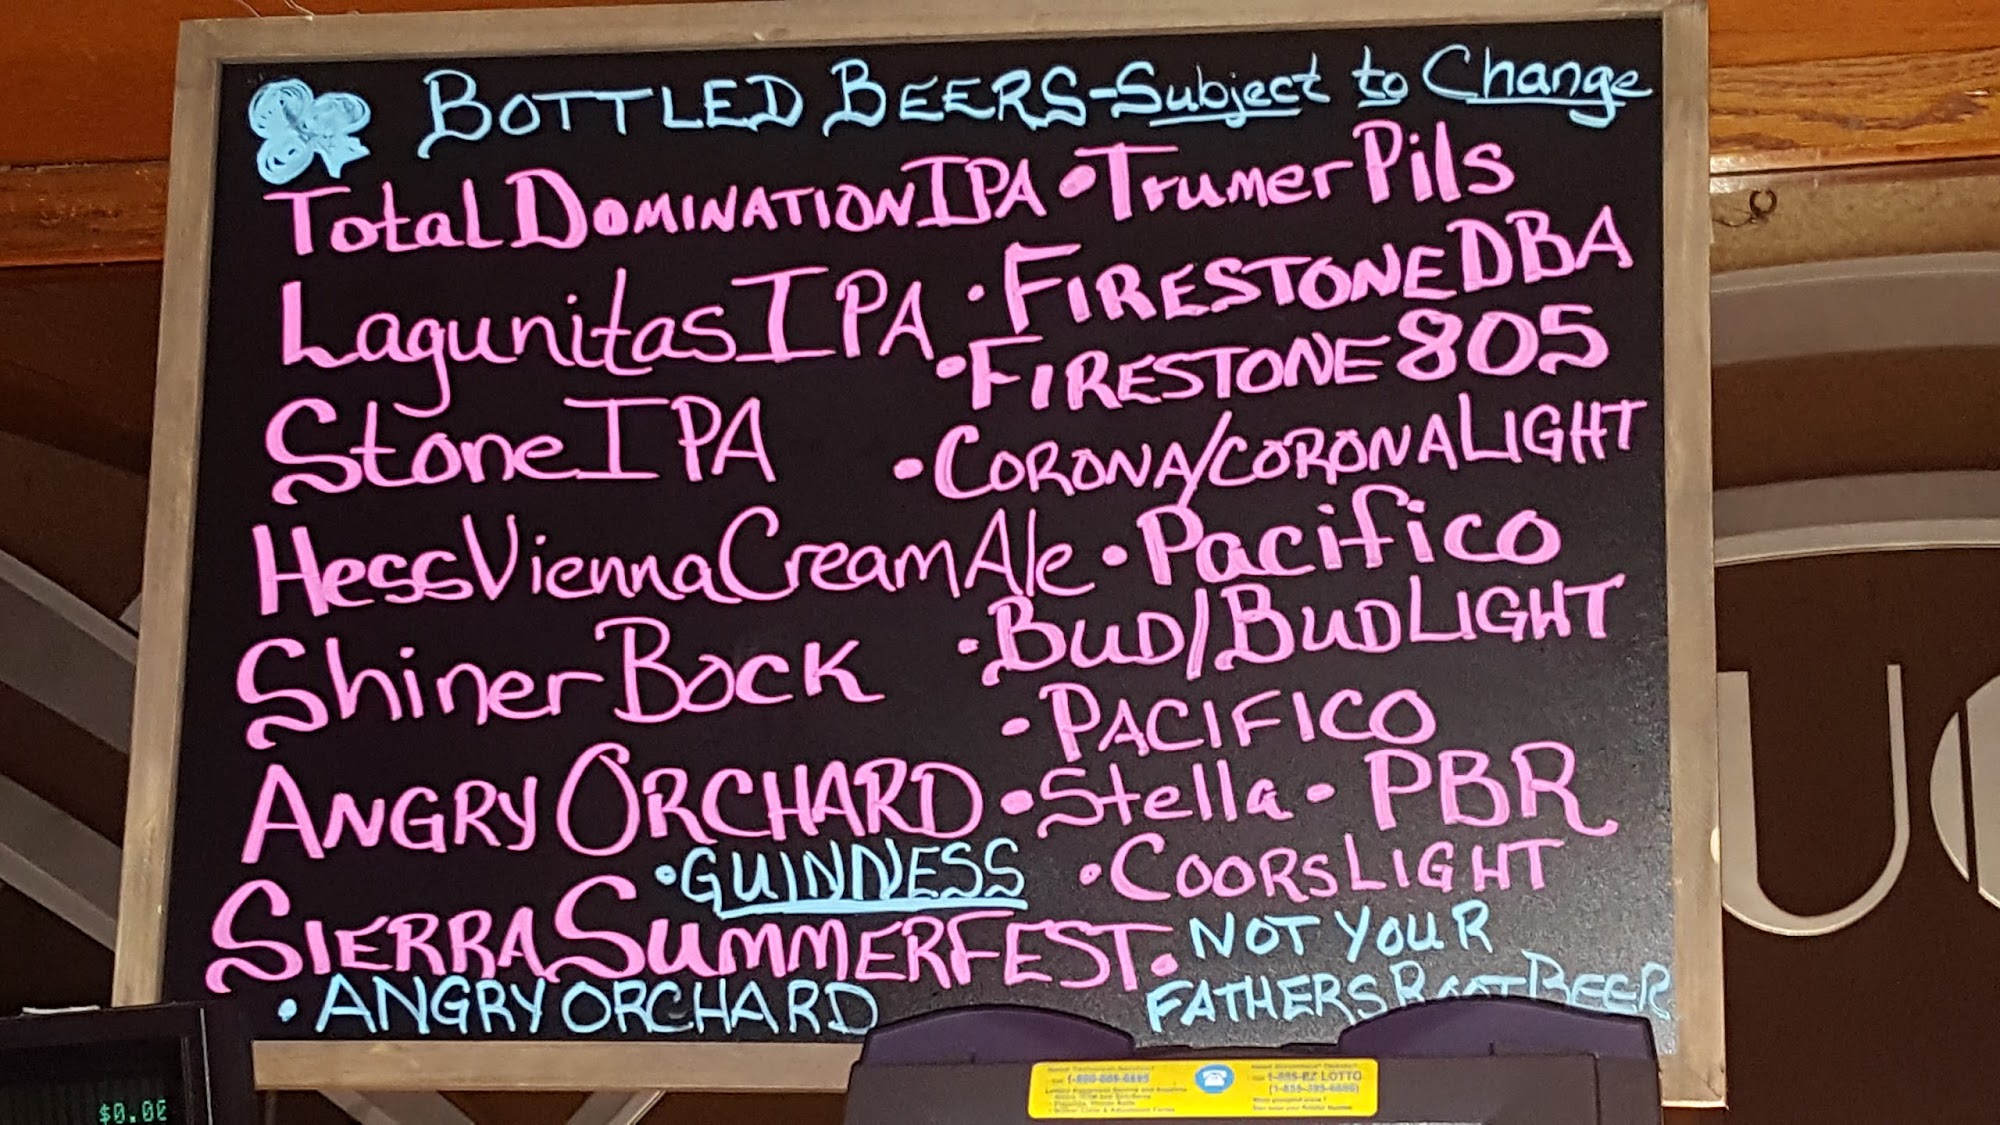 BOTTLED BEERS-Subject to Change
Total DOMINATION IPA • Trumer Pils
Lagunitas IPA • FIRESTONE DBA
• FIRESTONE 805
Stone IPA • CORONA/CORONA LIGHT
Hess Vienna Cream Ale • Pacifico
Shiner Bock • BUD/BUD LIGHT
• PACIFICO
ANGRY ORCHARD • Stella • PBR
• GUINNESS • COORS LIGHT
SIERRA SUMMERFEST • NOT YOUR
• ANGRY ORCHARD FATHERS ROOT BEER
$0.00